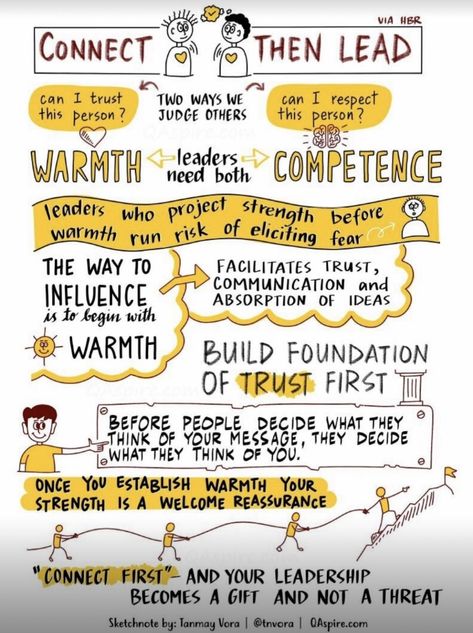 VIA HBR
CONNECT THEN LEAD
can I trust
this person?
TWO WAYS WE
JUDGE OTHERS
can I respect
this person?
WARMTH
leaders
need both
COMPETENCE
leaders who project strength before
warmth run risk of eliciting fear
THE WAY TO
INFLUENCE
is to begin with
WARMTH
FACILITATES TRUST,
COMMUNICATION and
ABSORPTION OF IDEAS
BUILD FOUNDATION
OF TRUST FIRST
BEFORE PEOPLE DECIDE WHAT THEY
THINK OF YOUR MESSAGE, THEY DECIDE
WHAT THEY THINK OF YOU.
ONCE YOU ESTABLISH WARMTH YOUR
STRENGTH IS A WELCOME REASSURANCE
QAspire.com
"CONNECT FIRST" - AND YOUR LEADERSHIP
BECOMES A GIFT AND NOT A THREAT
Sketchnote by: Tanmay Vora | @tnvora | QAspire.com